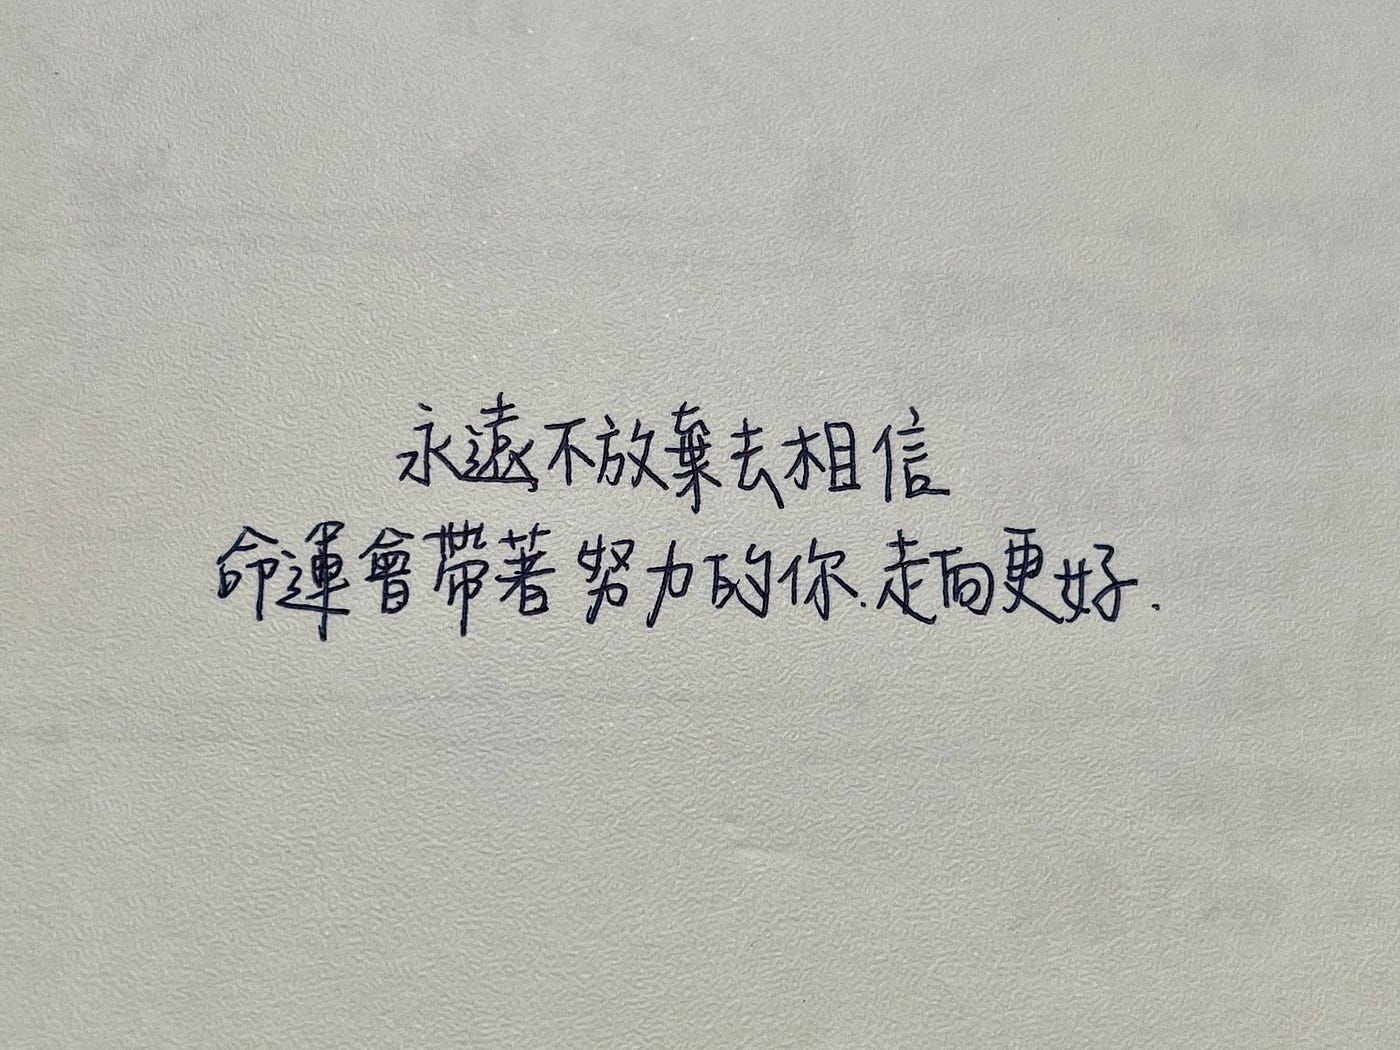 永遠不放棄去相信
命運會帶著努力的你.走向更好.